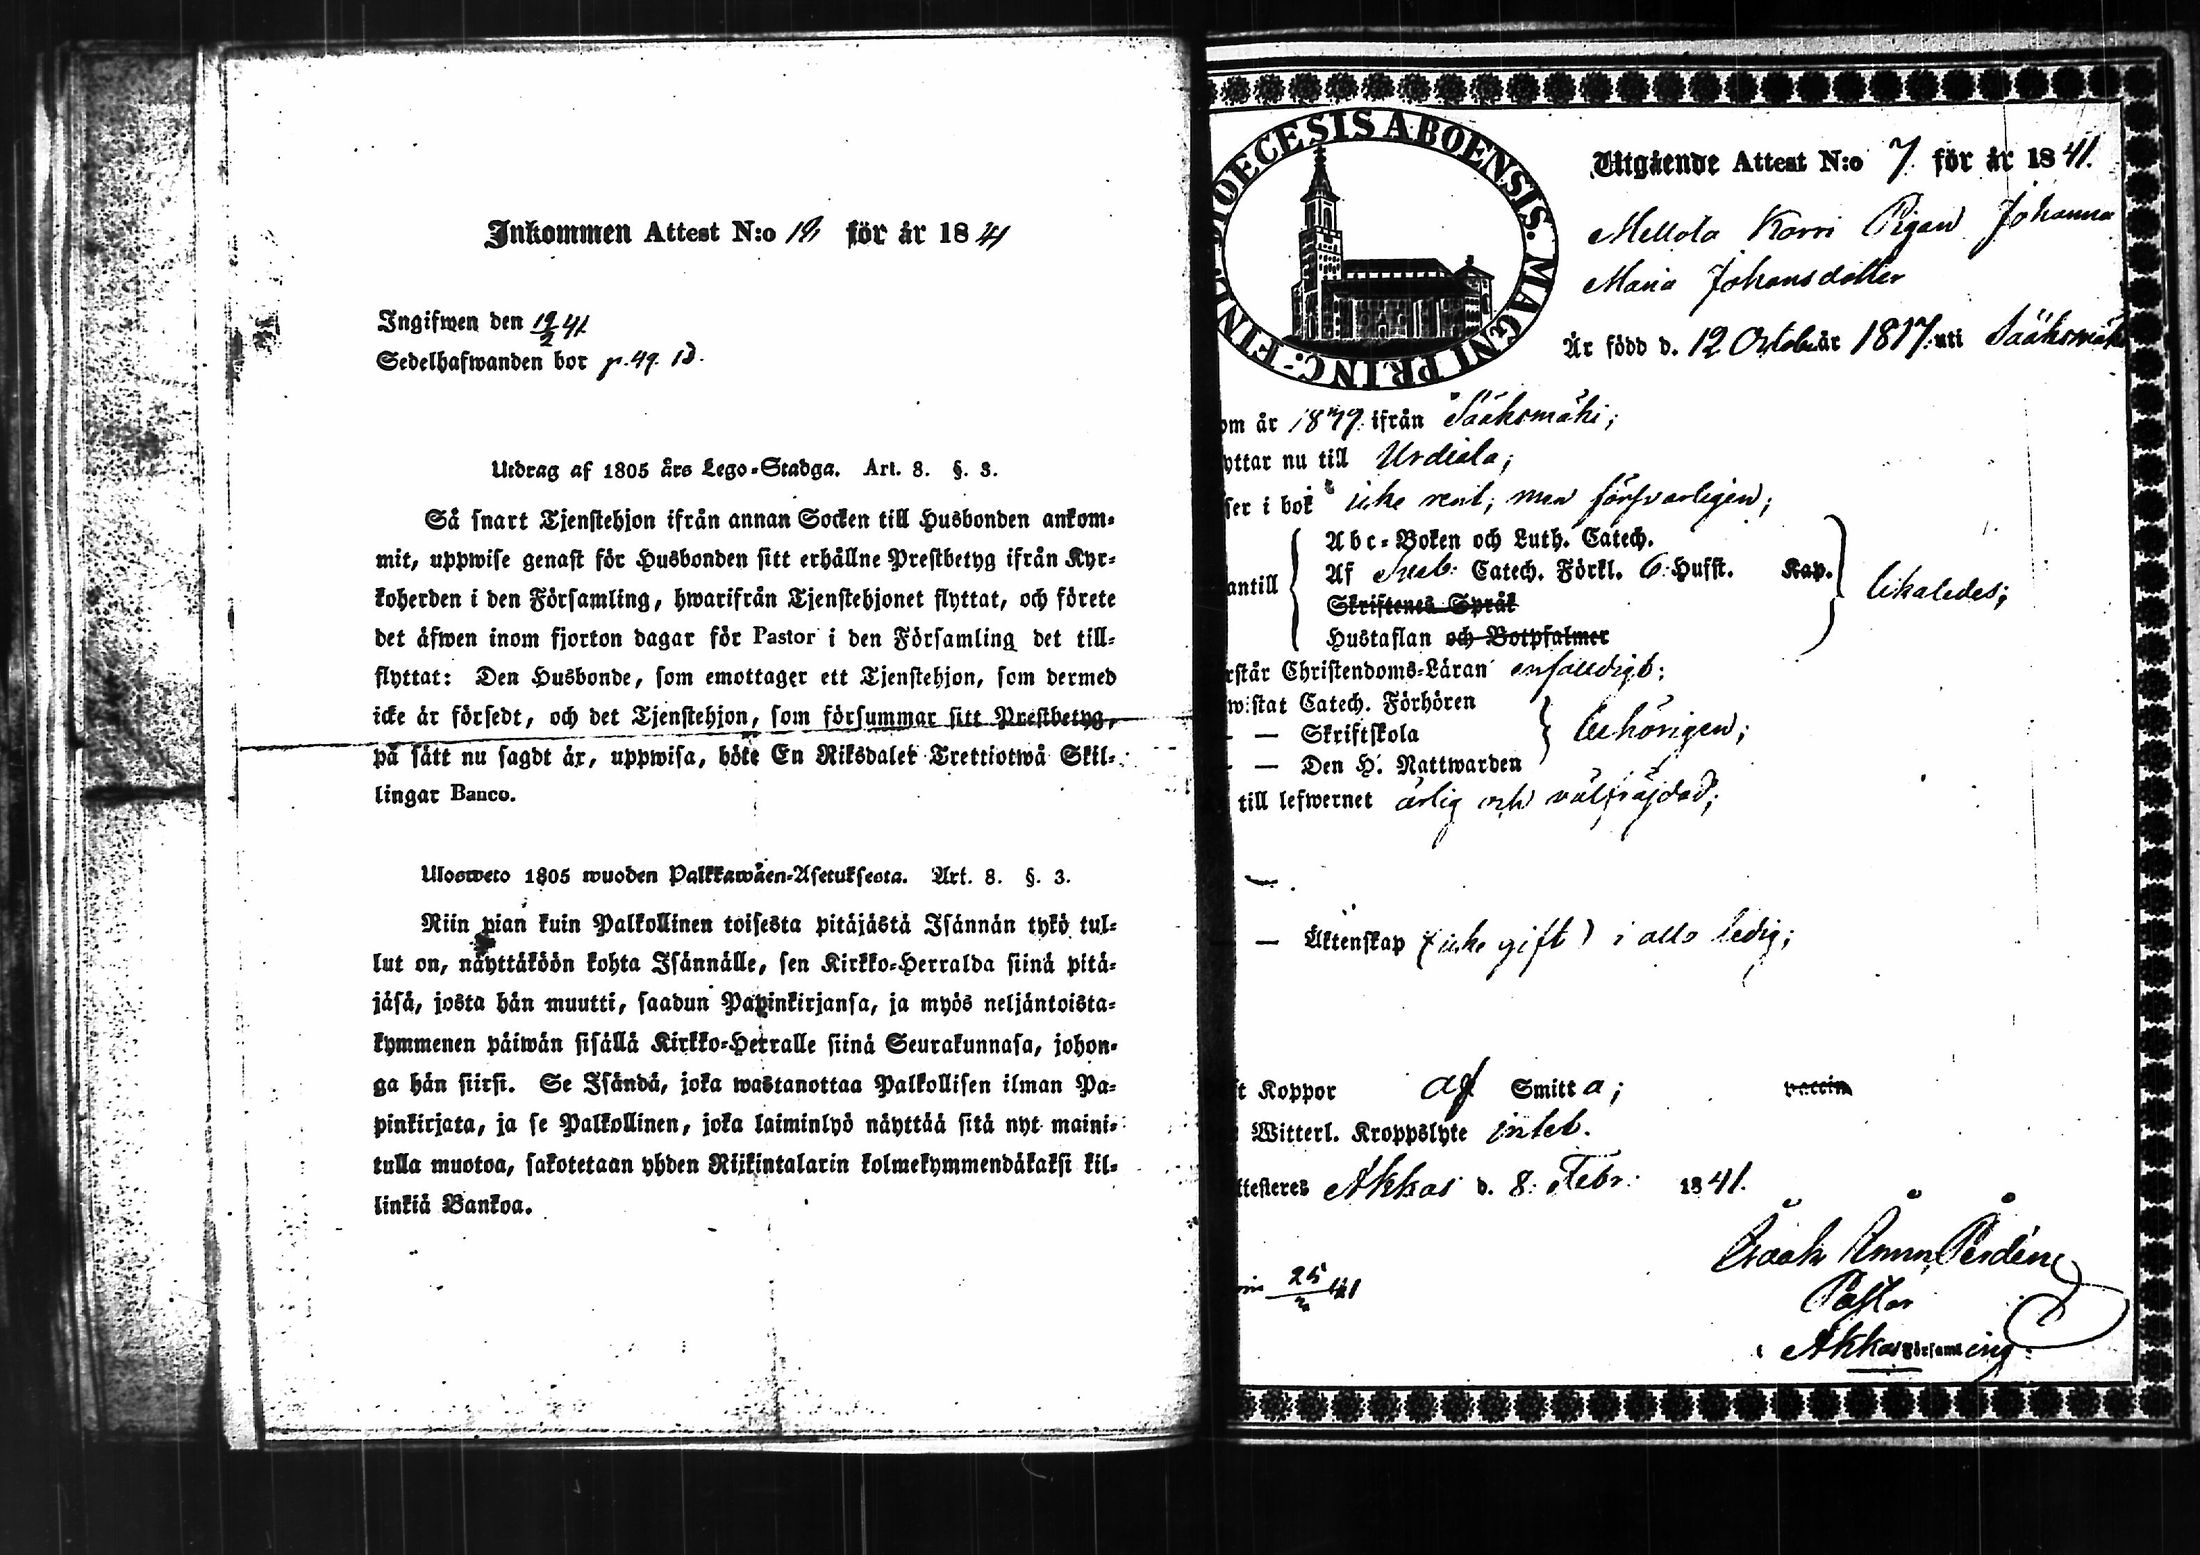 Inkommen Attest N:o 12 för år 1841
Ingifwen den 19/2 41
Sedelhafwanden bor p. 49. 
Utdrag af 1805 års Lego-Stadga. Art. 8. §. 3.
Så snart Tjenstehjon ifrån annan Socken till Husbonden ankom-
mit, uppwise genast för Husbonden sitt erhållne Prestbetyg ifrån Kyr-
koherden i den Församling, hwarifrån Tjenstehjonet flyttat, och förete
det äfwen inom fjorton dagar för Pastor i den Församling det till-
flyttat: Den Husbonde, som emottager ett Tjenstehjon, som dermed
icke är försedt, och det Tjenstehjon, som försummar sitt Prestbetyg,
på sätt nu sagdt är, uppwisa, böte En Riksdaler Trettiotwå Skil-
lingar Banco.
Ulosweto 1805 wuoden Palkkawäen-Asetuksesta. Art. 8. §. 3.
Niin pian kuin Palkollinen toisesta pitäjästä Isännän tykö tul-
lut on, näyttäköön kohta Isännälle, sen Kirkko-Herralda siinä pitä-
jäsä, josta hän muutti, saadun Papinkirjansa, ja myös neljäntoista-
kymmenen päiwän sisällä Kirkko-Herralle siinä Seurakunnasa, johon-
ga hän siirsi. Se Isändä, joka wastanottaa Palkollisen ilman Pa-
pinkirjata, ja se Palkollinen, joka laiminlyö näyttää sitä nyt maini-
tulla muotoa, sakotetaan yhden Riikintalarin kolmekymmendäkaksi kil-
linkiä Bankoa.
DIOECESIS ABOENSIS. MAGNI PRINC: FINL.
Utgående Attest N:o 7. för år 1841.
Mellola Korri Pigan Johanna
Maria Johansdotter
Är född d. 12 October år 1817. uti Sääksmäki
om år 18 ifrån Sääksmäki;
yttar nu till Urdiala;
ser i bok icke rent, men försvarligen;
antill
Abc-Boken och Luth. Catech.
Af Sveb: Catech. Förkl. 6. Hufst. Kap.
Skriftenes Språk
Hustaflan och Botpsalmer
likaledes;
rstår Christendoms-Läran enfaldigt;
w:stat Catech. Förhören
— Skriftskola
— Den H. Nattwarden
behörigen;
till lefwernet ärlig och välfräjdad;
— .
— Äktenskap (icke gift) i allo ledig;
t Koppor af Smitta; vaccin
Witterl. Kroppslyte intet.
ttesteres Akkas d. 8. Febr: 1841.
25/2 41
Isaak Perdén
Pastor
i Akkas Församling.